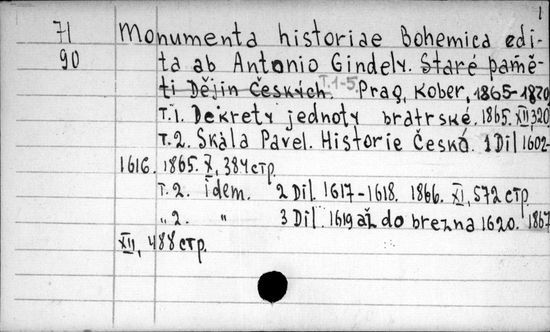 1
71 Monumenta historiae Bohemica edi-
90 ta ab Antonio Gindely. Staré pamě-
ti Dějin Českých. T.1-5. Prag, Kober, 1865-1870
т.1. Dekrety jednoty bratrské. 1865. XII, 320
т.2. Skála Pavel. Historie Česká. 1 Díl 1602-
1616. 1865. X, 384 стр.
т.2. idem. 2 Díl. 1617-1618. 1866. XI, 572 стр.
„ 2. „ 3 Díl. 1619 až do brezna 1620. 1867
XII, 488 стр.